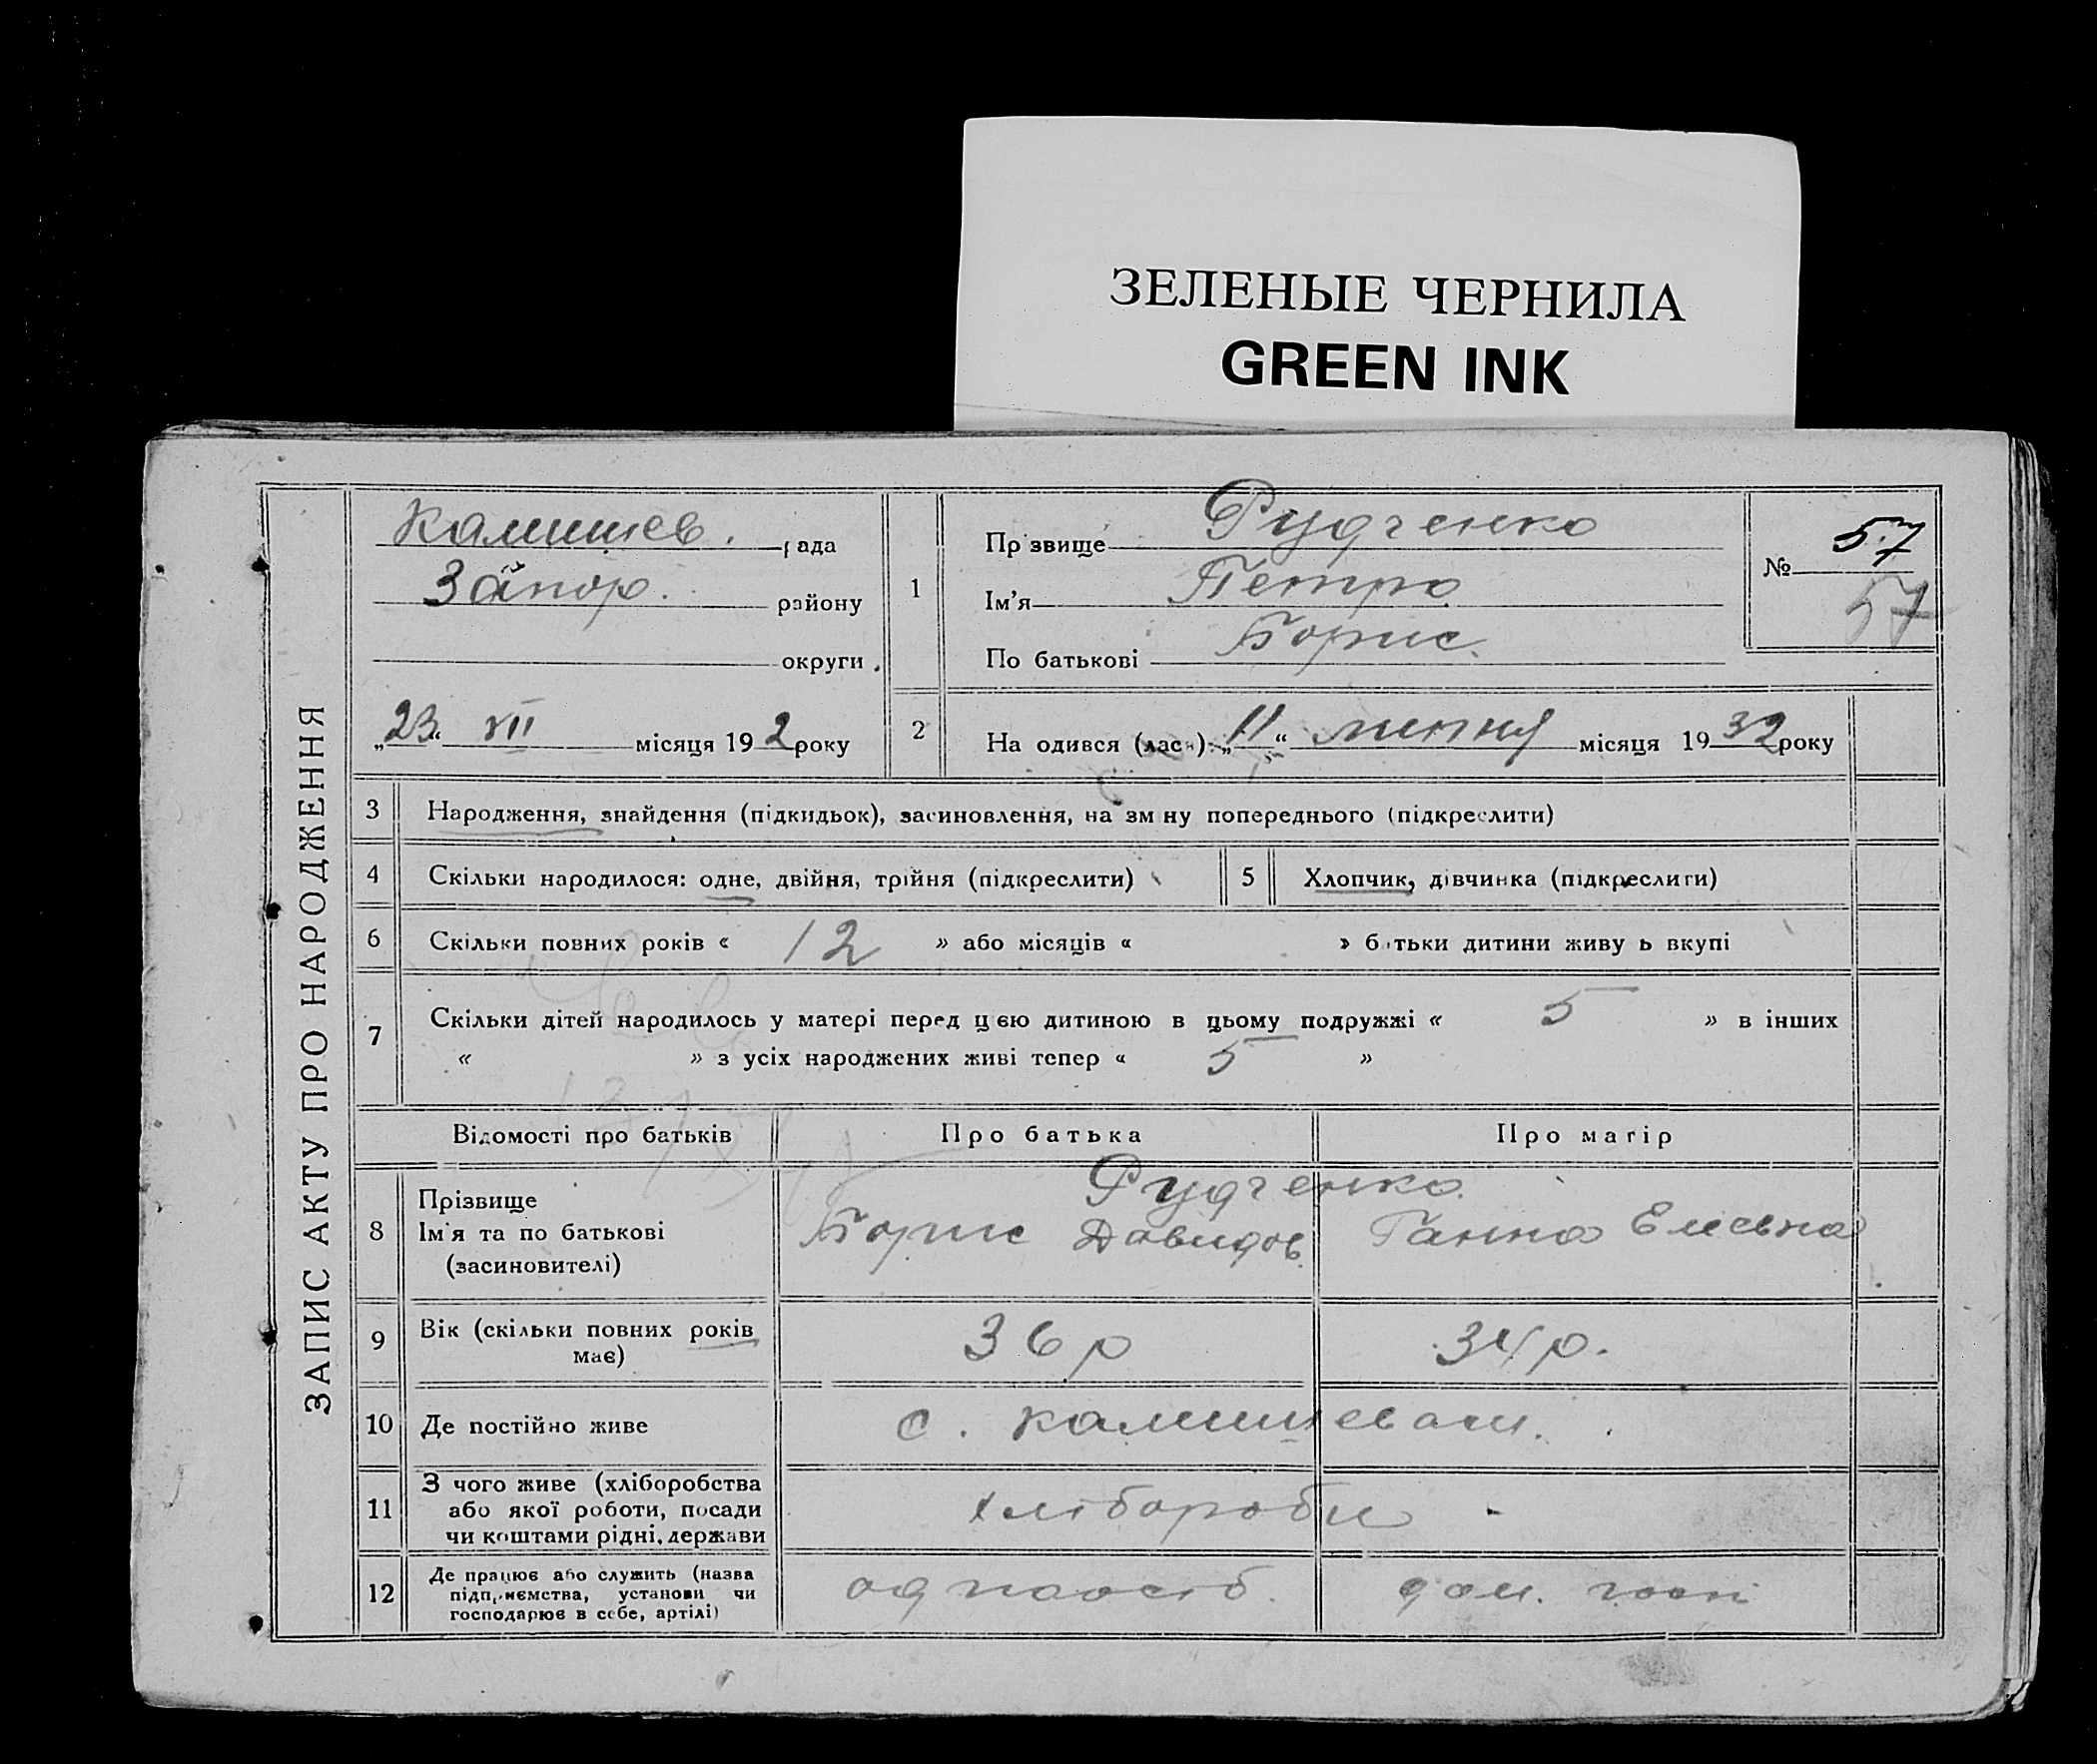 ЗЕЛЕНЫЕ ЧЕРНИЛА
GREEN INK
ЗАПИС АКТУ ПРО НАРОДЖЕННЯ
Камишев. рада
Запор. району
округи.
„23“ VII місяця 19 2 року
1
Прізвище Рудченко
Ім'я Петро
По батькові Борис.
№ 57
57
2 На одився (лася): „11“ липня місяця 19 32 року
3 Народження, знайдення (підкидьок), засиновлення, на зм ну попереднього (підкреслити)
4 Скільки народилося: одне, двійня, трійня (підкреслити)
5 Хлопчик, дівчинка (підкреслити)
6 Скільки повних років « 12 » або місяців « » батьки дитини живу ь вкупі
7 Скільки дітей народилось у матері перед цією дитиною в цьому подружжі « 5 » в інших
« » з усіх народжених живі тепер « 5 »
Відомості про батьків Про батька Про матір
8 Прізвище
Ім'я та по батькові
(засиновителі)
Рудченко
Борис Давидов. Ганна
9 Вік (скільки повних років
має)
36 р 34 р.
10 Де постійно живе с. Камишеваш.
11 З чого живе (хліборобства
або якої роботи, посади
чи коштами рідні, держави
хлібороби -
12 Де працює або служить (назва
підприємства, установи чи
господарює в себе, артілі)
одноосіб. дом. госп